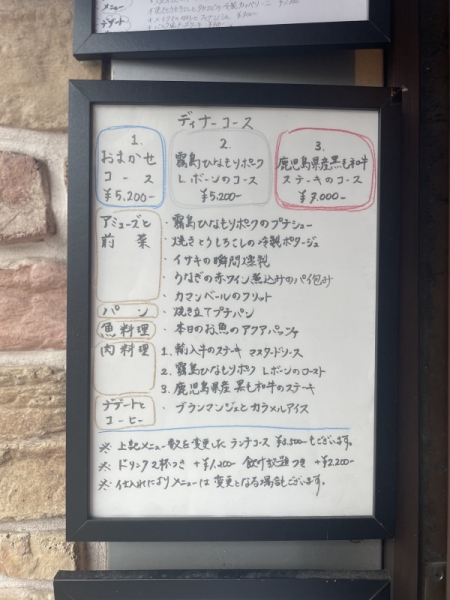 メニュー
デザート
ディナーコース
1.
おまかせ
コース
¥5,200-
2.
霧島ひなもりポーク
Lボーンのコース
¥5,200-
3.
鹿児島県産黒毛和牛
ステーキのコース
¥7,000-
アミューズと
前菜
・霧島ひなもりポークのプチシュー
・焼きとうもろこしの冷製ポタージュ
・イサキの瞬間燻製
・うなぎの赤ワイン煮込みのパイ包み
・カマンベールのフリット
パン
・焼き立てプチパン
魚料理
・本日のお魚のアクアパッツァ
肉料理
1. 輸入牛のステーキ マスタードソース
2. 霧島ひなもりポーク Lボーンのロースト
3. 鹿児島県産 黒毛和牛のステーキ
デザートと
コーヒー
・ブランマンジェとカラメルアイス
※ 上記メニュー数を変更したランチコース ¥3,500-もございます。
※ ドリンク2杯つき +¥1,200- 飲み放題つき +¥2,200-
※ 仕入れによりメニューは変更となる場合もございます。